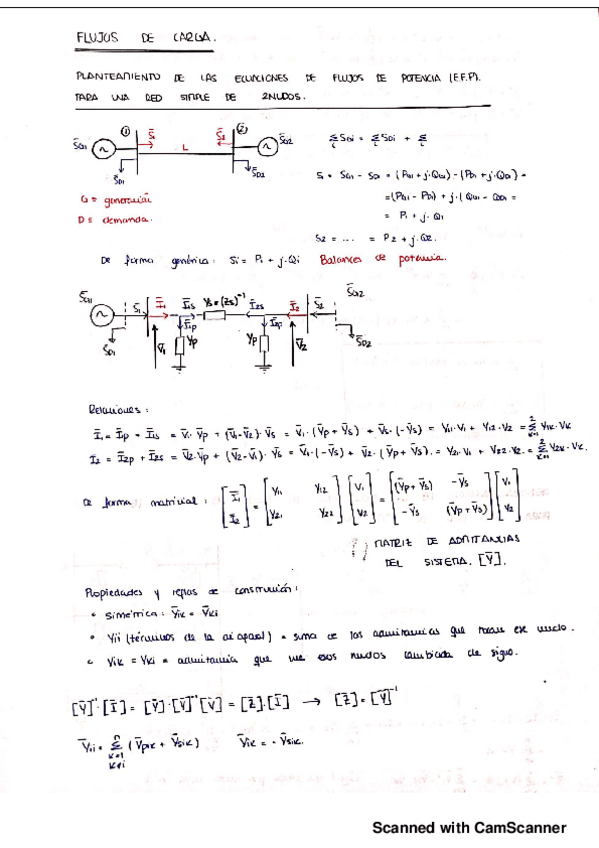 FLUJOS DE CARGA.
PLANTEAMIENTO DE LAS ECUACIONES DE FLUJOS DE POTENCIA (E.F.P).
PARA UNA RED SIMPLE DE 2NUDOS.
① S̄₁ S̄₂ ②
S̄G1 L S̄G2
S̄D1 S̄D2
G = generación
D = demanda.
Σ SGi = Σ SDi + Σ
S₁ = SG1 - SD1 = (PG1 + j·QG1) - (PD1 + j·QD1) =
= (PG1 - PD1) + j·(QG1 - QD1 =
= P₁ + j·Q₁
S₂ = ... = P₂ + j·Q₂.
De forma genérica: Si = Pi + j·Qi Balances de potencia.
S̄G1 S₁ Ī₁ Ī1S YS = (ZS)⁻¹ Ī2S Ī₂ S̄₂ S̄G2
Ī1P Ī2P
S̄D1 V̄₁ YP YP V̄₂ S̄D2
Relaciones:
Ī₁ = Ī1P + Ī1S = V̄₁·ȲP + (V̄₁-V̄₂)·ȲS = V̄₁·(ȲP + ȲS) + V̄₂·(-ȲS) = Y₁₁·V₁ + Y₁₂·V₂ = Σ Y1K·VK
I₂ = Ī2P + Ī2S = V̄₂·ȲP + (V̄₂-V̄₁)·ȲS = V̄₁·(-ȲS) + V̄₂·(ȲP + ȲS). = Y₂₁·V₁ + Y₂₂·V₂. = Σ Y2K·VK.
De forma matricial: [Ī₁ Ī₂] = [Y₁₁ Y₁₂ Y₂₁ Y₂₂] [V₁ V₂] = [(ȲP + ȲS) -ȲS -ȲS (ȲP + ȲS)] [V₁ V₂]
MATRIZ DE ADMITANCIAS
DEL SISTEMA. [Ȳ].
Propiedades y reglas de construcción:
• Simétrica: Ȳik = Ȳki
• Yii (términos de la diagonal) = suma de las admitancias que tocan ese nudo.
• Yik = Yki = admitancia que une esos nudos cambiada de signo.
[Ȳ]⁻¹·[Ī] = [Ȳ]·[Ȳ]⁻¹[V̄] = [Z̄]·[Ī] → [Z̄] = [Ȳ]⁻¹
Ȳii = Σ (ȲPik + ȲSik) Ȳik = -ȲSik.
Scanned with CamScanner